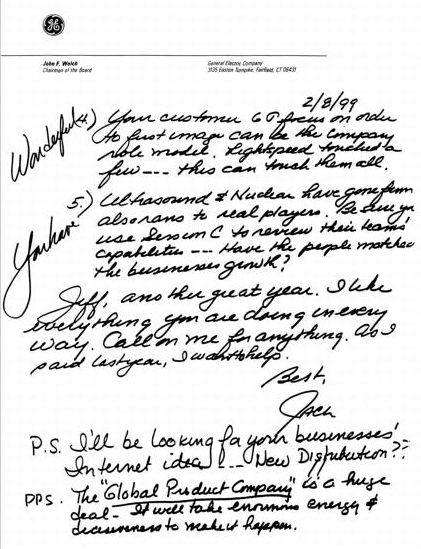 GE
John F. Welch
Chairman of the Board
General Electric Company
3135 Easton Turnpike, Fairfield, CT 06431
2/8/99
Wonderful
4.) Your customer 6σ focus on order
to first image can be the Company
role model. Lightspeed touched a
few --- this can touch them all.
You have
5.) Ultrasound & Nuclear have gone from
also rans to real players. Be sure you
use Session C to review their teams'
capabilities --- Have the people matched
the businesses growth?
Jeff, another great year. I like
everything you are doing in every
way. Call on me for anything. As I
said last year, I want to help.
Best,
Jack
P.S. I'll be looking for your businesses'
Internet idea --- New Distribution??
PPS. The "Global Product Company" is a huge
deal - It will take enormous energy &
decisiveness to make it happen.